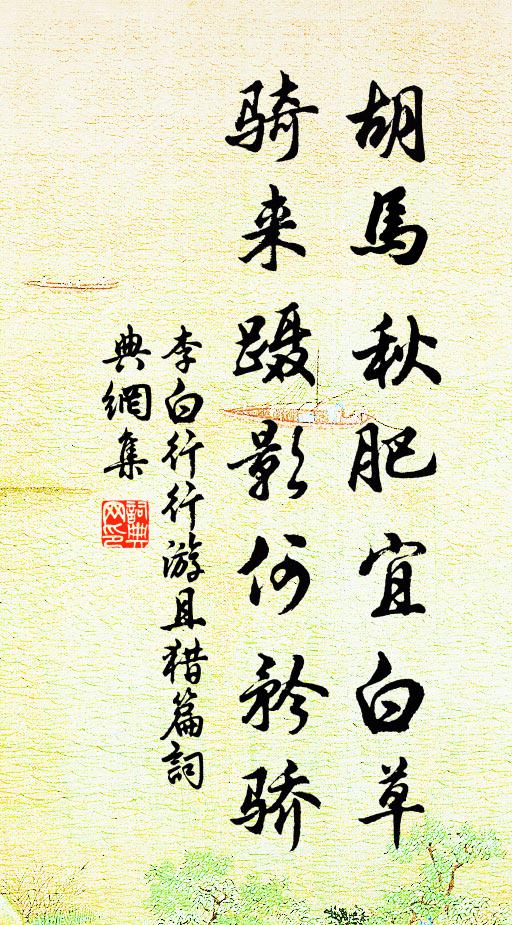 胡馬秋肥宜白草
骑来蹑影何矜骄
李白行行游且猎篇詞
典網集
詞典网印